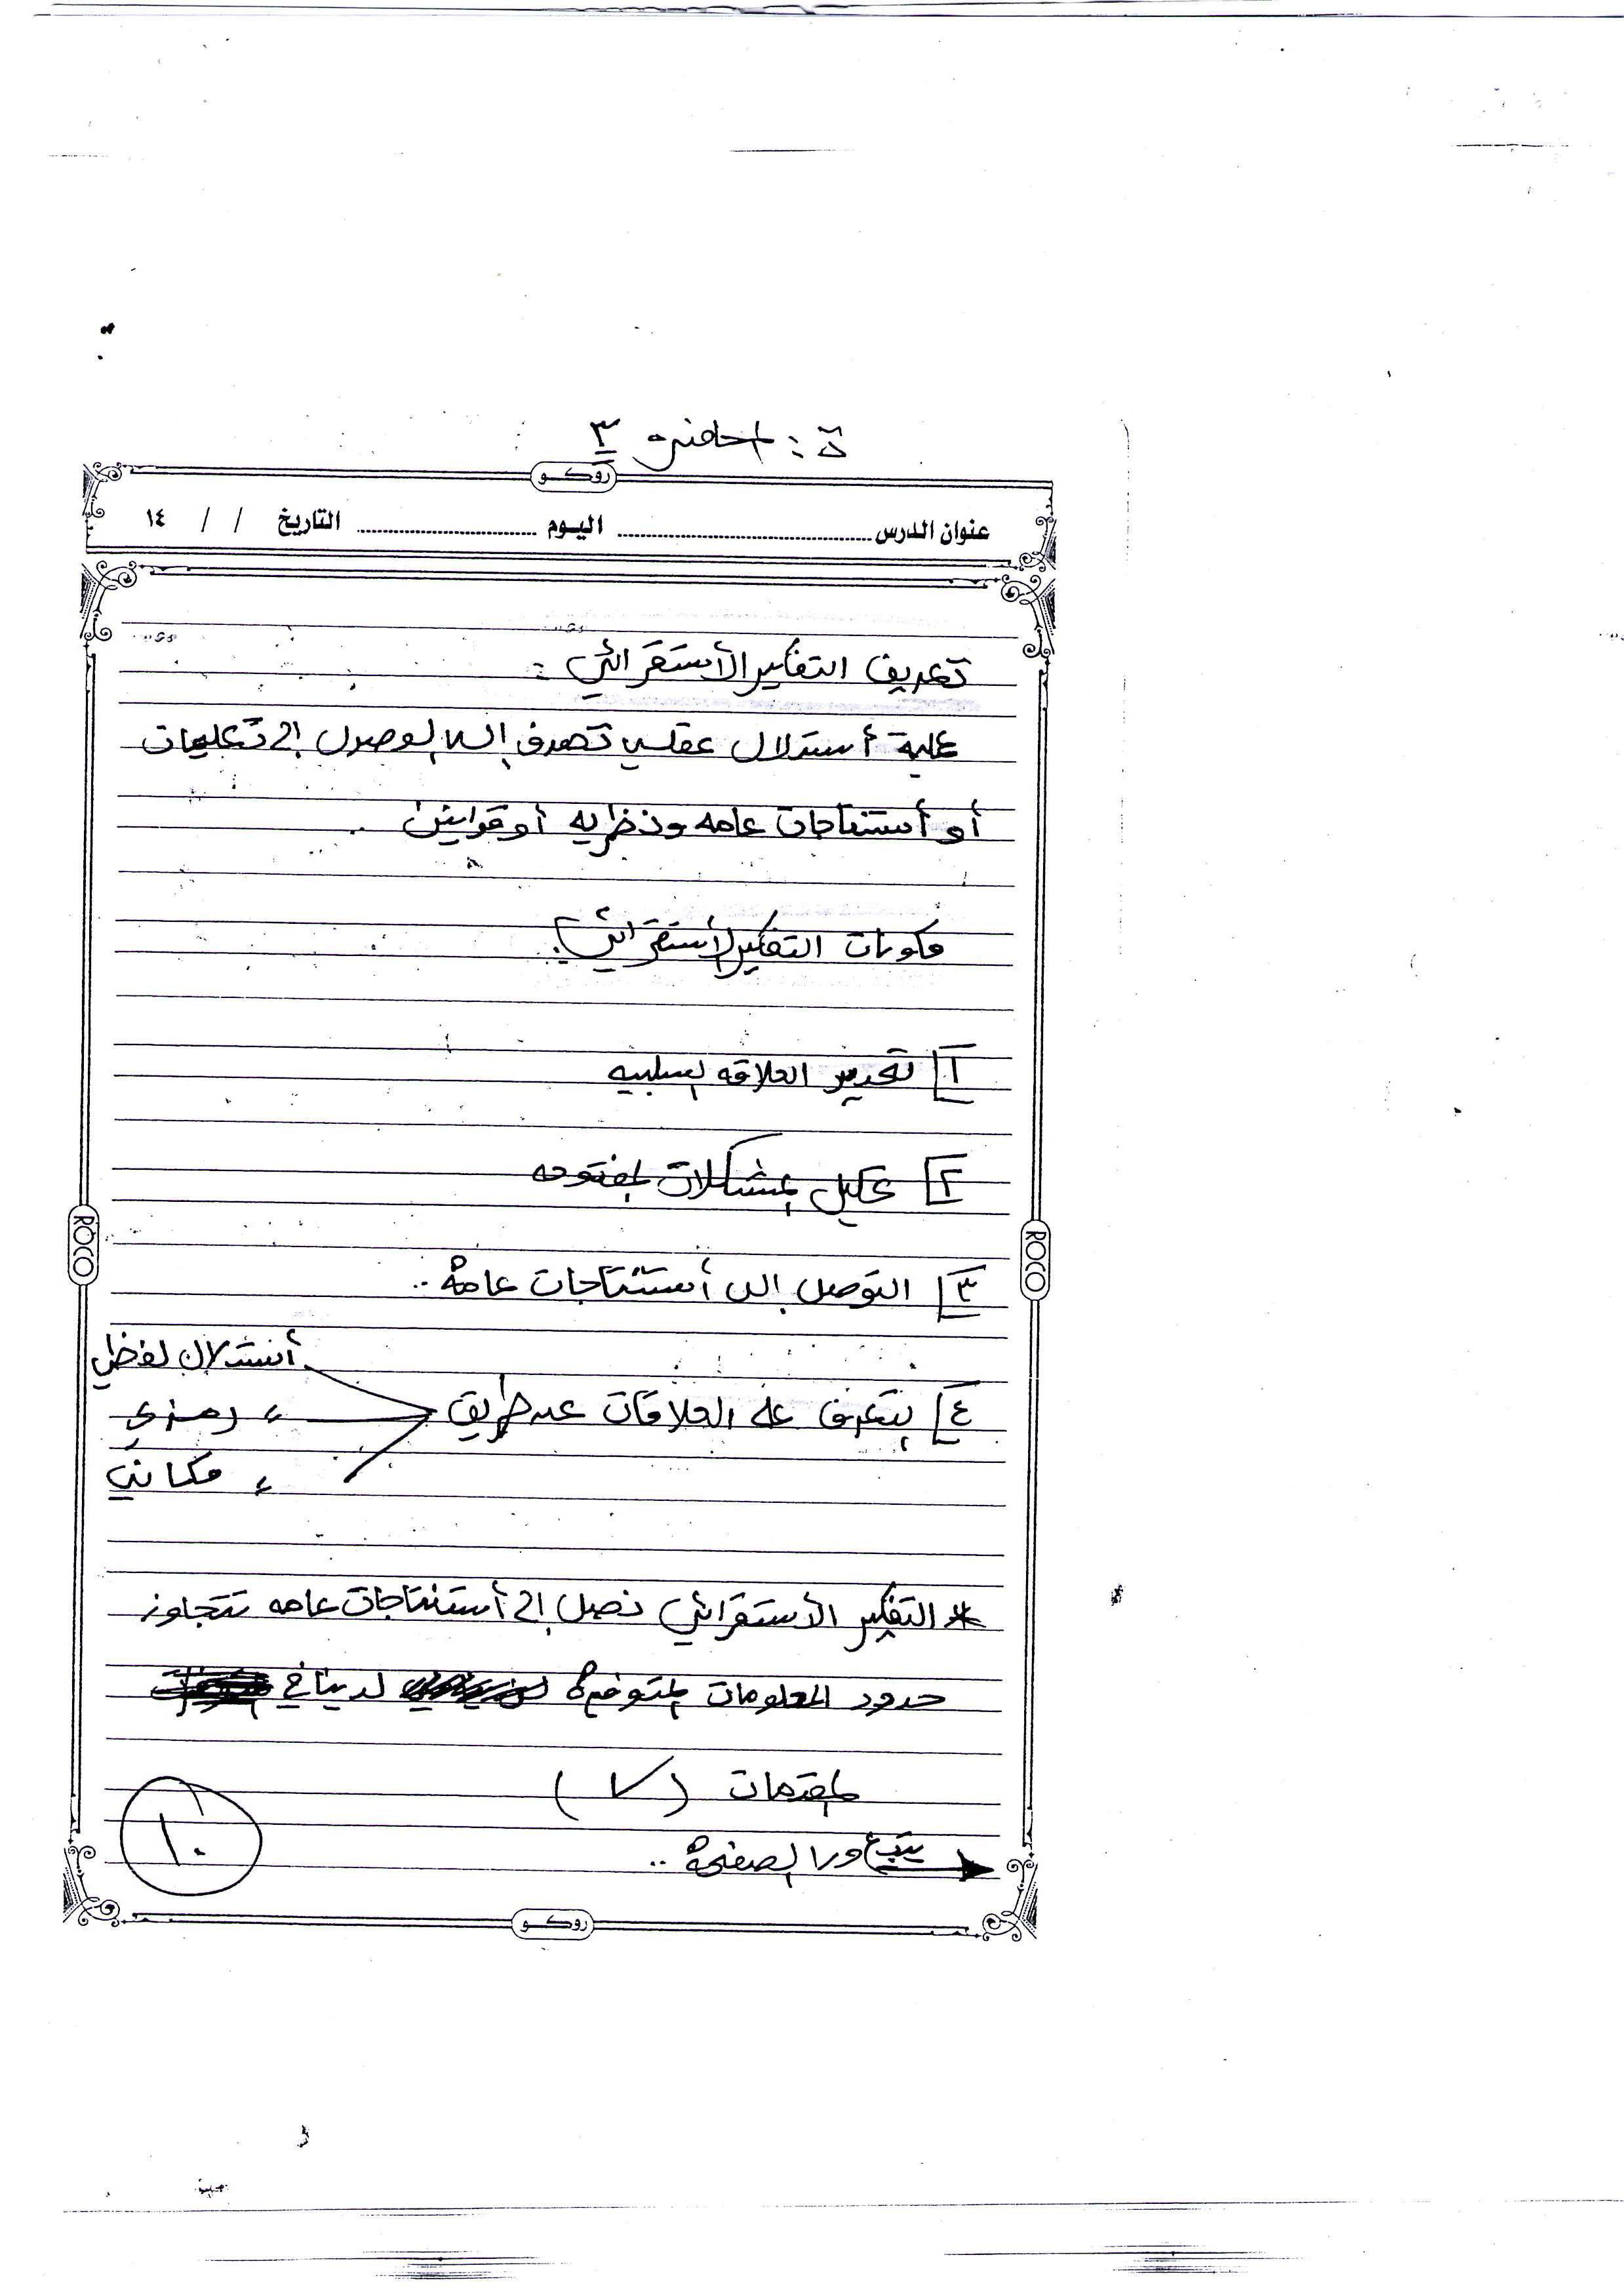 ة : المحاضره ٣
روكو
عنوان الدرس ........ اليوم ........ التاريخ / / ١٤
تعريف التفكير الأستقرائي :
عملية أستدلال عقلي تهدف إلى الوصول إلى تعليمات
أو أستنتاجات عامه ونظريه أو قوانين .
مكونات التفكير الأستقرائي :
١ تحديد العلاقه السببيه
٢ تحليل المشكلات المفتوحه
٣ التوصل إلى أستنتاجات عامة ..
٤ يتعرف على العلاقات عن طريق أستدلال لفظي
〃 رمزي
〃 مكاني
* التفكير الأستقرائي نصل إلى أستنتاجات عامه تتجاوز
حدود المعلومات المتوفرة لدينا في
المقدمات ( ✓ )
يتبع ورا الصفحة ..
١٠
ROCO
ROCO
روكو